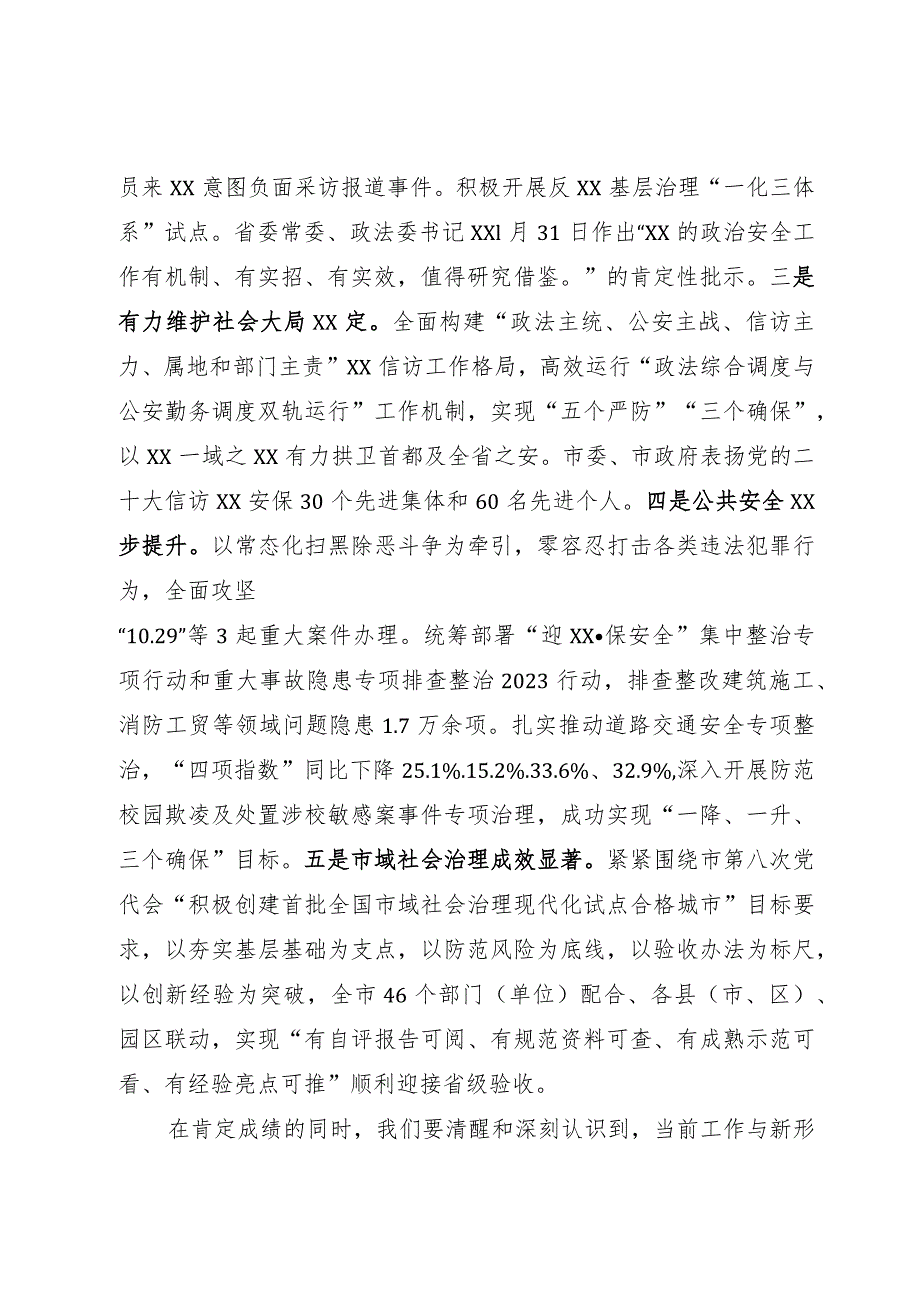 员来 XX 意图负面采访报道事件。积极开展反 XX 基层治理“一化三体
系”试点。省委常委、政法委书记 XXl 月 31 日作出“XX 的政治安全工
作有机制、有实招、有实效，值得研究借鉴。”的肯定性批示。三是
有力维护社会大局 XX 定。全面构建“政法主统、公安主战、信访主
力、属地和部门主责”XX 信访工作格局，高效运行“政法综合调度与
公安勤务调度双轨运行”工作机制，实现“五个严防”“三个确保”，
以 XX 一域之 XX 有力拱卫首都及全省之安。市委、市政府表扬党的二
十大信访 XX 安保 30 个先进集体和 60 名先进个人。四是公共安全 XX
步提升。以常态化扫黑除恶斗争为牵引，零容忍打击各类违法犯罪行
为，全面攻坚
“10.29”等 3 起重大案件办理。统筹部署“迎 XX•保安全”集中整治专
项行动和重大事故隐患专项排查整治 2023 行动，排查整改建筑施工、
消防工贸等领域问题隐患 1.7 万余项。扎实推动道路交通安全专项整
治，“四项指数”同比下降 25.1%.15.2%.33.6%、32.9%,深入开展防范
校园欺凌及处置涉校敏感案事件专项治理，成功实现“一降、一升、
三个确保”目标。五是市域社会治理成效显著。紧紧围绕市第八次党
代会“积极创建首批全国市域社会治理现代化试点合格城市”目标要
求，以夯实基层基础为支点，以防范风险为底线，以验收办法为标尺，
以创新经验为突破，全市 46 个部门（单位）配合、各县（市、区）、
园区联动，实现“有自评报告可阅、有规范资料可查、有成熟示范可
看、有经验亮点可推”顺利迎接省级验收。
在肯定成绩的同时，我们要清醒和深刻认识到，当前工作与新形